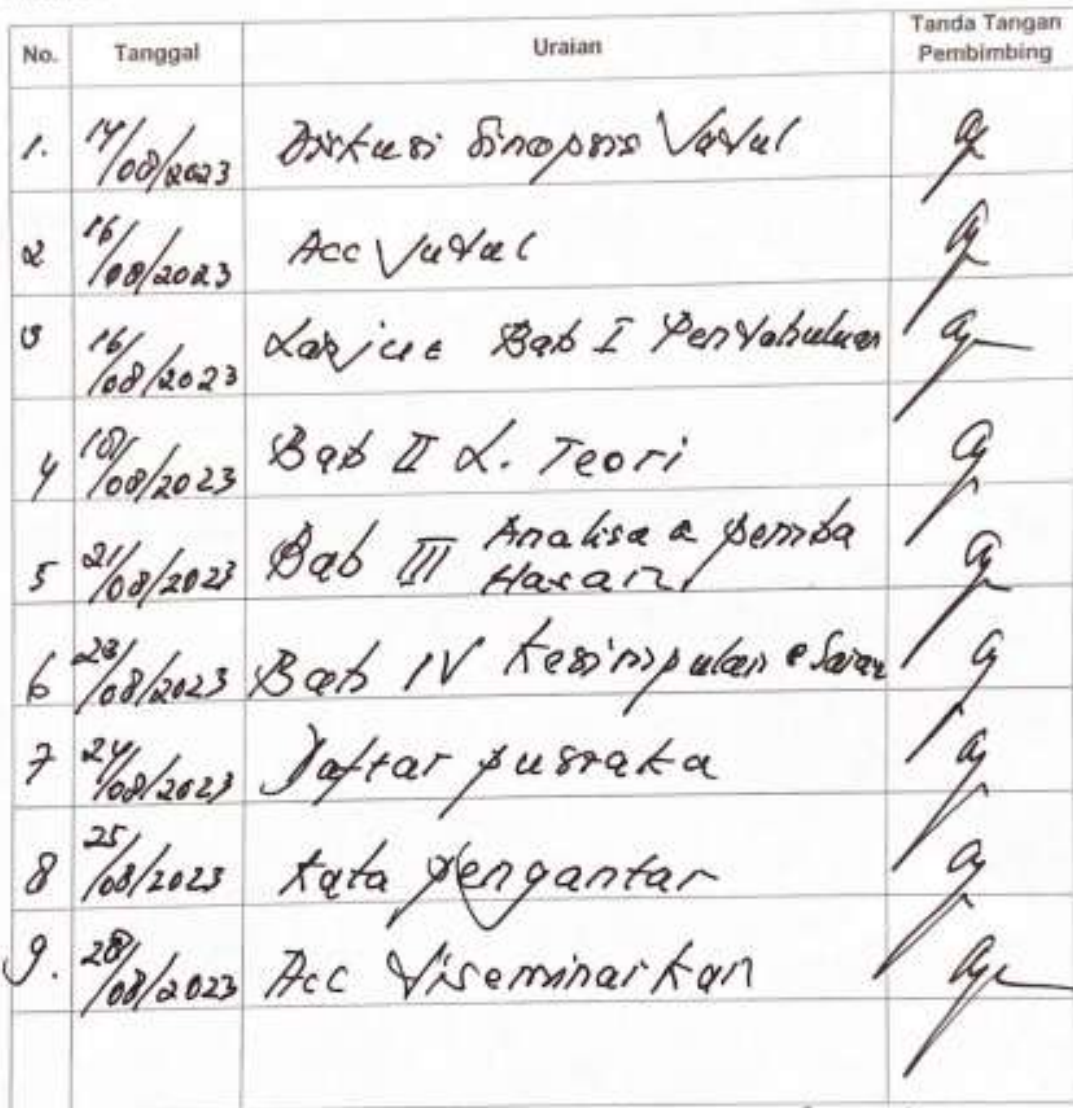 No. Tanggal Uraian Tanda Tangan Pembimbing
1. 14/08/2023 Diskusi Sinopsis Judul
2 16/08/2023 Acc Judul
3 16/08/2023 Lanjut Bab I Pendahuluan
4 18/08/2023 Bab II L. Teori
5 21/08/2023 Bab III Analisa & pemba
Hasan
6 23/08/2023 Bab IV Kesimpulan & Saran
7 24/08/2023 Daftar pustaka
8 25/08/2023 Kata pengantar
9. 28/08/2023 Acc diseminarkan